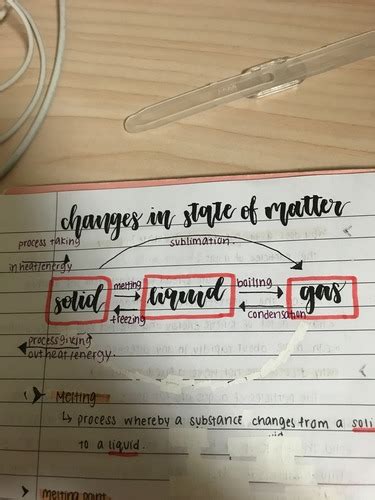 changes in state of matter
process taking
in heat/energy
sublimation.
solid
melting
freezing
liquid
boiling
condensation
gas
process giving
out heat/energy.
1) Melting
↳ process whereby a substance changes from a soli
to a liquid.
melting point